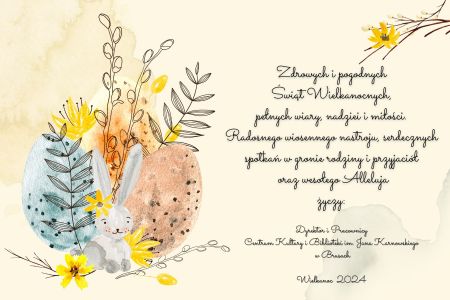 Zdrowych i pogodnych
Świąt Wielkanocnych,
pełnych wiary, nadziei i miłości.
Radosnego wiosennego nastroju, serdecznych
spotkań w gronie rodziny i przyjaciół
oraz wesołego Alleluja
życzy:
Dyrektor i Pracownicy
Centrum Kultury i Biblioteki im. Jana Karnowskiego
w Brusach
Wielkanoc 2024